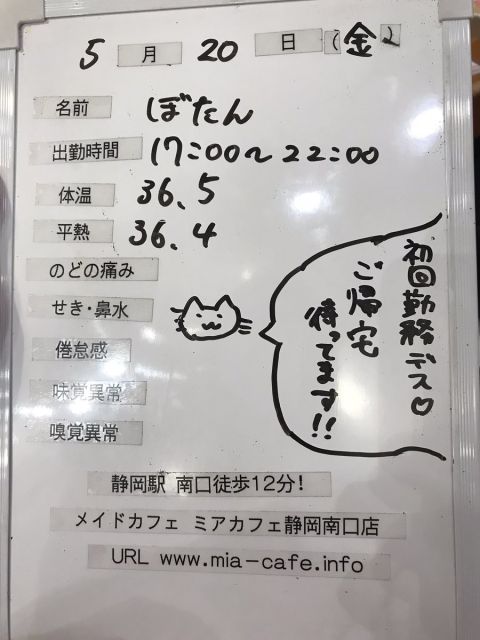 5月20日(金)
名前 ぼたん
出勤時間 17:00~22:00
体温 36.5
平熱 36.4
のどの痛み
せき・鼻水
倦怠感
味覚異常
嗅覚異常
初回勤務デス♡
ご帰宅
待ってます!!
静岡駅 南口徒歩12分!
メイドカフェ ミアカフェ静岡南口店
URL www.mia-cafe.info